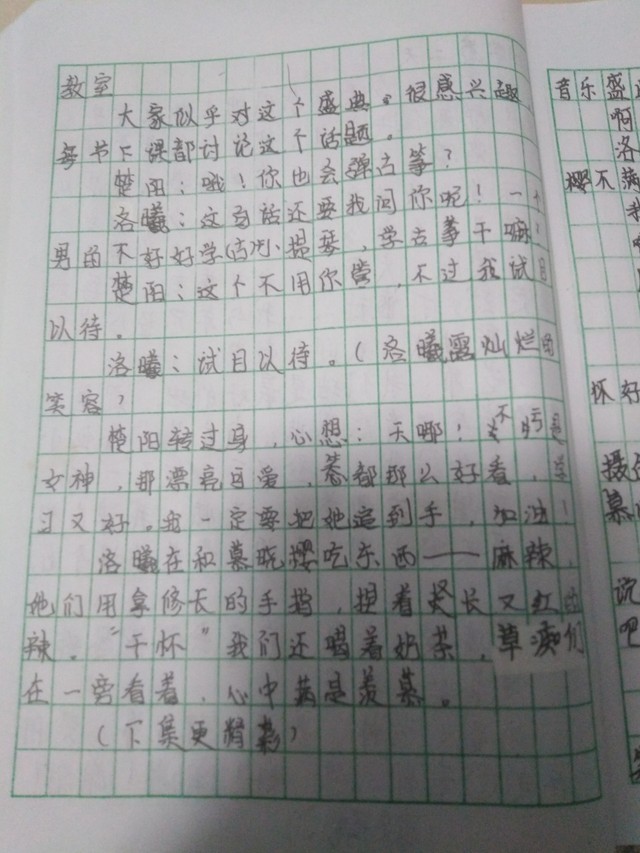 教室
大家似乎对这个盛典。很感兴趣
每节下课都讨论这个话题。
楚阳：哦！你也会弹古筝？
洛曦：这句话还要我问你呢！一个
男的不好好学 小提琴，学古筝干嘛
楚阳：这个不用你管，不过我试目
以待。
洛曦：试目以待。（洛曦露灿烂的
笑容）
楚阳转过身，心想：天哪！不亏是
女神，那漂亮可爱，都那么好看，学
习又好。我一定要把她追到手，加油！
洛曦在和慕晓樱吃东西——麻辣，
他们用拿修长的手指，捏着又长又红的
辣。“干杯”我们还喝着奶茶，草痴们
在一旁看着，心中满是羡慕。
（下集更精彩）
音乐盛
啊
洛
樱不满
我
怀好
摄
慕
说
吧